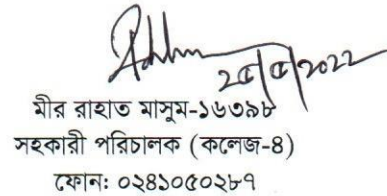 ২৫/৫/২০২২
মীর রাহাত মাসুম-১৬৩৯৮
সহকারী পরিচালক (কলেজ-৪)
ফোন: ০২৪১০৫০২৮৭